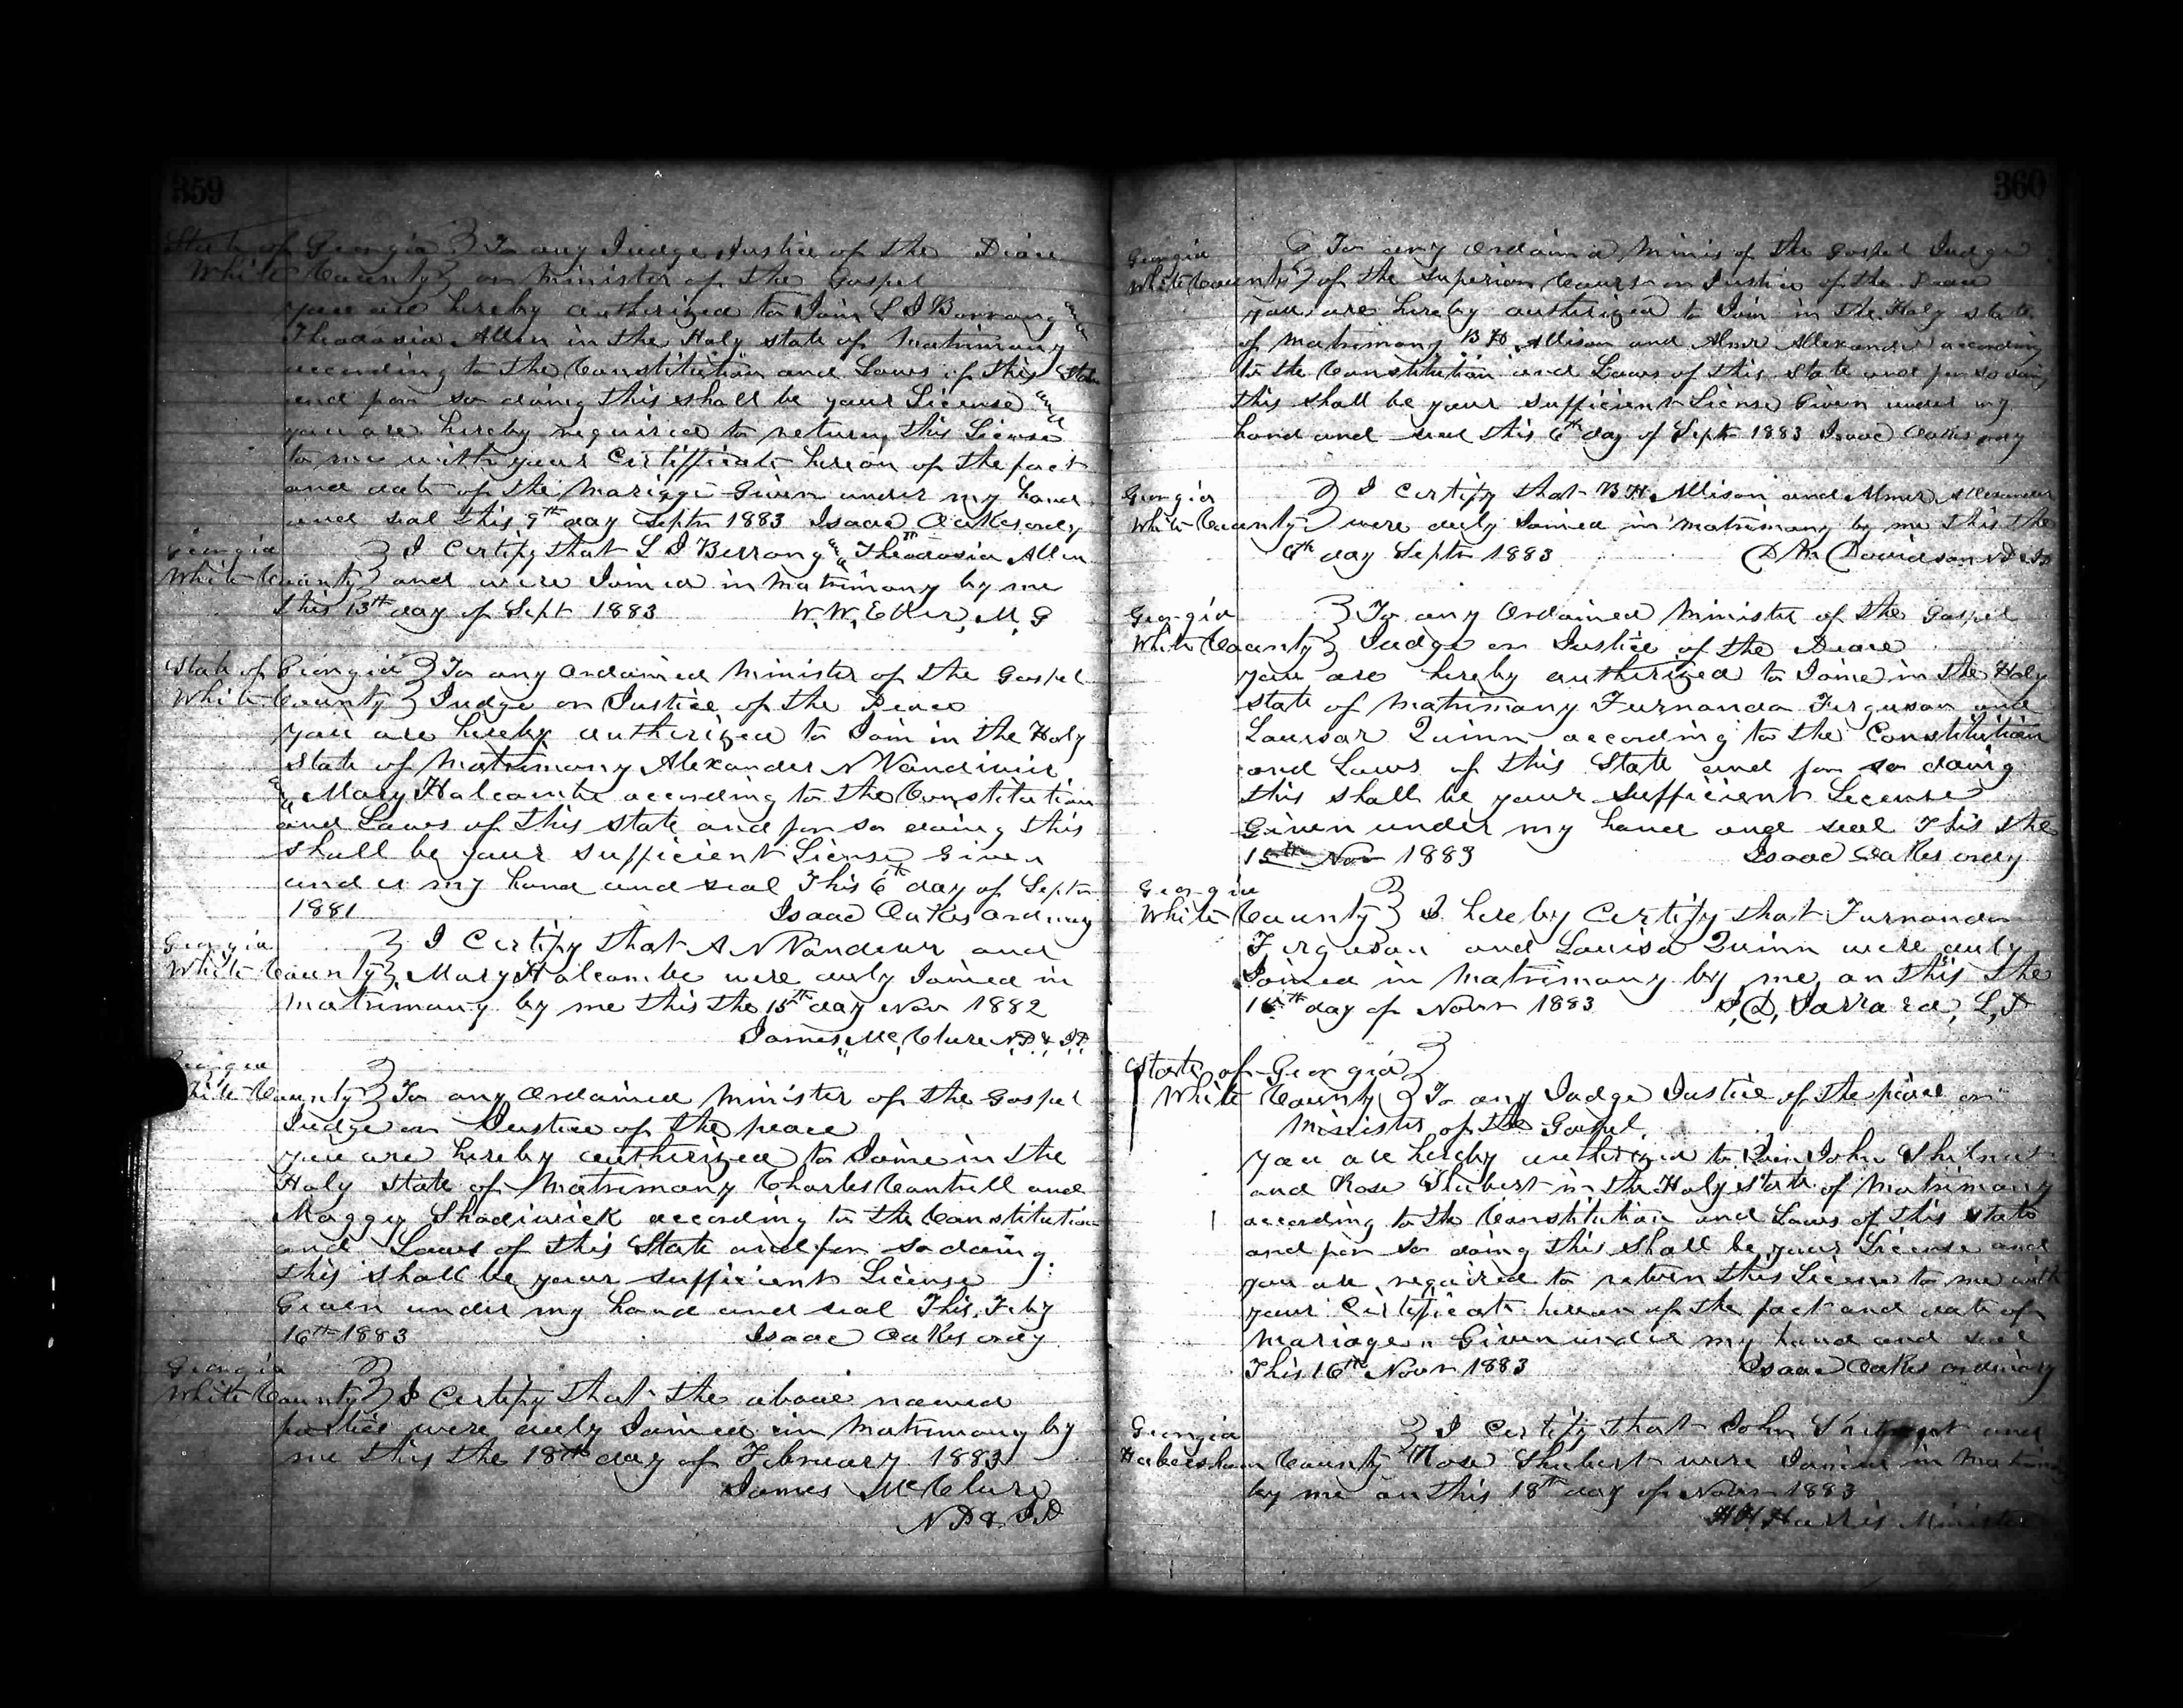 359
State of Georgia } To any Judge Justice of the Peace
White County } or Minister of the Gospel
you are hereby authorized to Join L J Berrong and
Theodosia Allen in the Holy state of Matrimony
according to the Constitution and Laws of this State
and for so doing this shall be your License and
you are hereby required to return this License
to me with your Certifficate hereon of the fact
and date of the Mariage Given under my hand
and seal this 9th day Septr 1883 Isaac Oakes ordy
Georgia
White County } I Certify that L J Berrong & Theodosia Allen
and were Joined in Matrimony by me
this 13th day of Sept 1883 W. W. Eller, M. G
State of Georgia } To any Ordained Minister of the Gospel
White County } Judge or Justice of the Peace
you are hereby authorized to Join in the Holy
State of Matrimony Alexander N
& Mary Halcombe according to the Constitution
and Laws of this state and for so doing this
shall be your sufficient License Given
under my hand and seal This 6th day of Septr
1881 Isaac Oakes Ordinary
Georgia } I Certify that A N Vandeur and
White County } Mary Halcombe were duly Joined in
Matrimony by me this the 15th day Nov 1882
James Mc Clure N.P. & J.P.
Georgia
White County } To any Ordained Minister of the Gospel
Judge or Justice of the peace
you are hereby authorized to Joine in the
Holy state of Matrimony Charles Cantrell and
Maggy Shadiwick according to the Constitution
and Laws of this State and for so doing
this shall be your sufficient License
Given under my hand and seal This Feby
16th 1883 Isaac Oakes ordy
Georgia
White County } I Certify that the above named
parties were duly Joined in Matrimony by
me this the 18th day of February 1883
James McClure
N P & J P
360
Georgia } To any Ordained Minis of the Gospel Judge
White County } of the Superior Court or Justice of the Peace
you are hereby authorized to Join in the Holy state
of Matrimony B H Allison and Almer Allexander according
to the Constitution and Laws of this State and for so doing
this shall be your sufficient License Given under my
hand and seal this 6th day of Sept 1883 Isaac Oakes ordy
Georgia } I Certify that B H Allison and Almer Allexander
White County } were duly Joined in Matrimony by me this the
6th day Septr 1883 D M Davidson
Georgia } To any Ordained Minister of the Gospel
White County } Judge or Justice of the Peace
you are hereby authorized to Joine in the Holy
state of Matrimony Furnanda Ferguson and
Louisar Quinn according to the Constitution
and Laws of this State and for so doing
this shall be your sufficient License
Given under my hand and seal This the
15th Nov 1883 Isaac Oakes ordy
Georgia
White County } I hereby Certify that Furnander
Ferguson and Louisa Quinn were duly
Joined in Matrimony by me on this the
15th day of Novr 1883 Jarrard, L,D
State of Georgia }
White County } To any Judge Justice of the peace or
Minister of the Gospel.
you are hereby authorized to Join John
and Rose Shubert in the Holy state of Matrimony
according to the Constitution and Laws of this state
and for so doing this shall be your License and
you are required to return this License to me with
your Certificate hereon of the fact and date of
Mariage. Given under my hand and seal
This 16th Novr 1883 Isaac Oakes ordinary
Georgia } I Certify that John and
Habersham County Rose Shubert were Joined in
by me on this 18th day of Novr 1883
H H Harris Minister